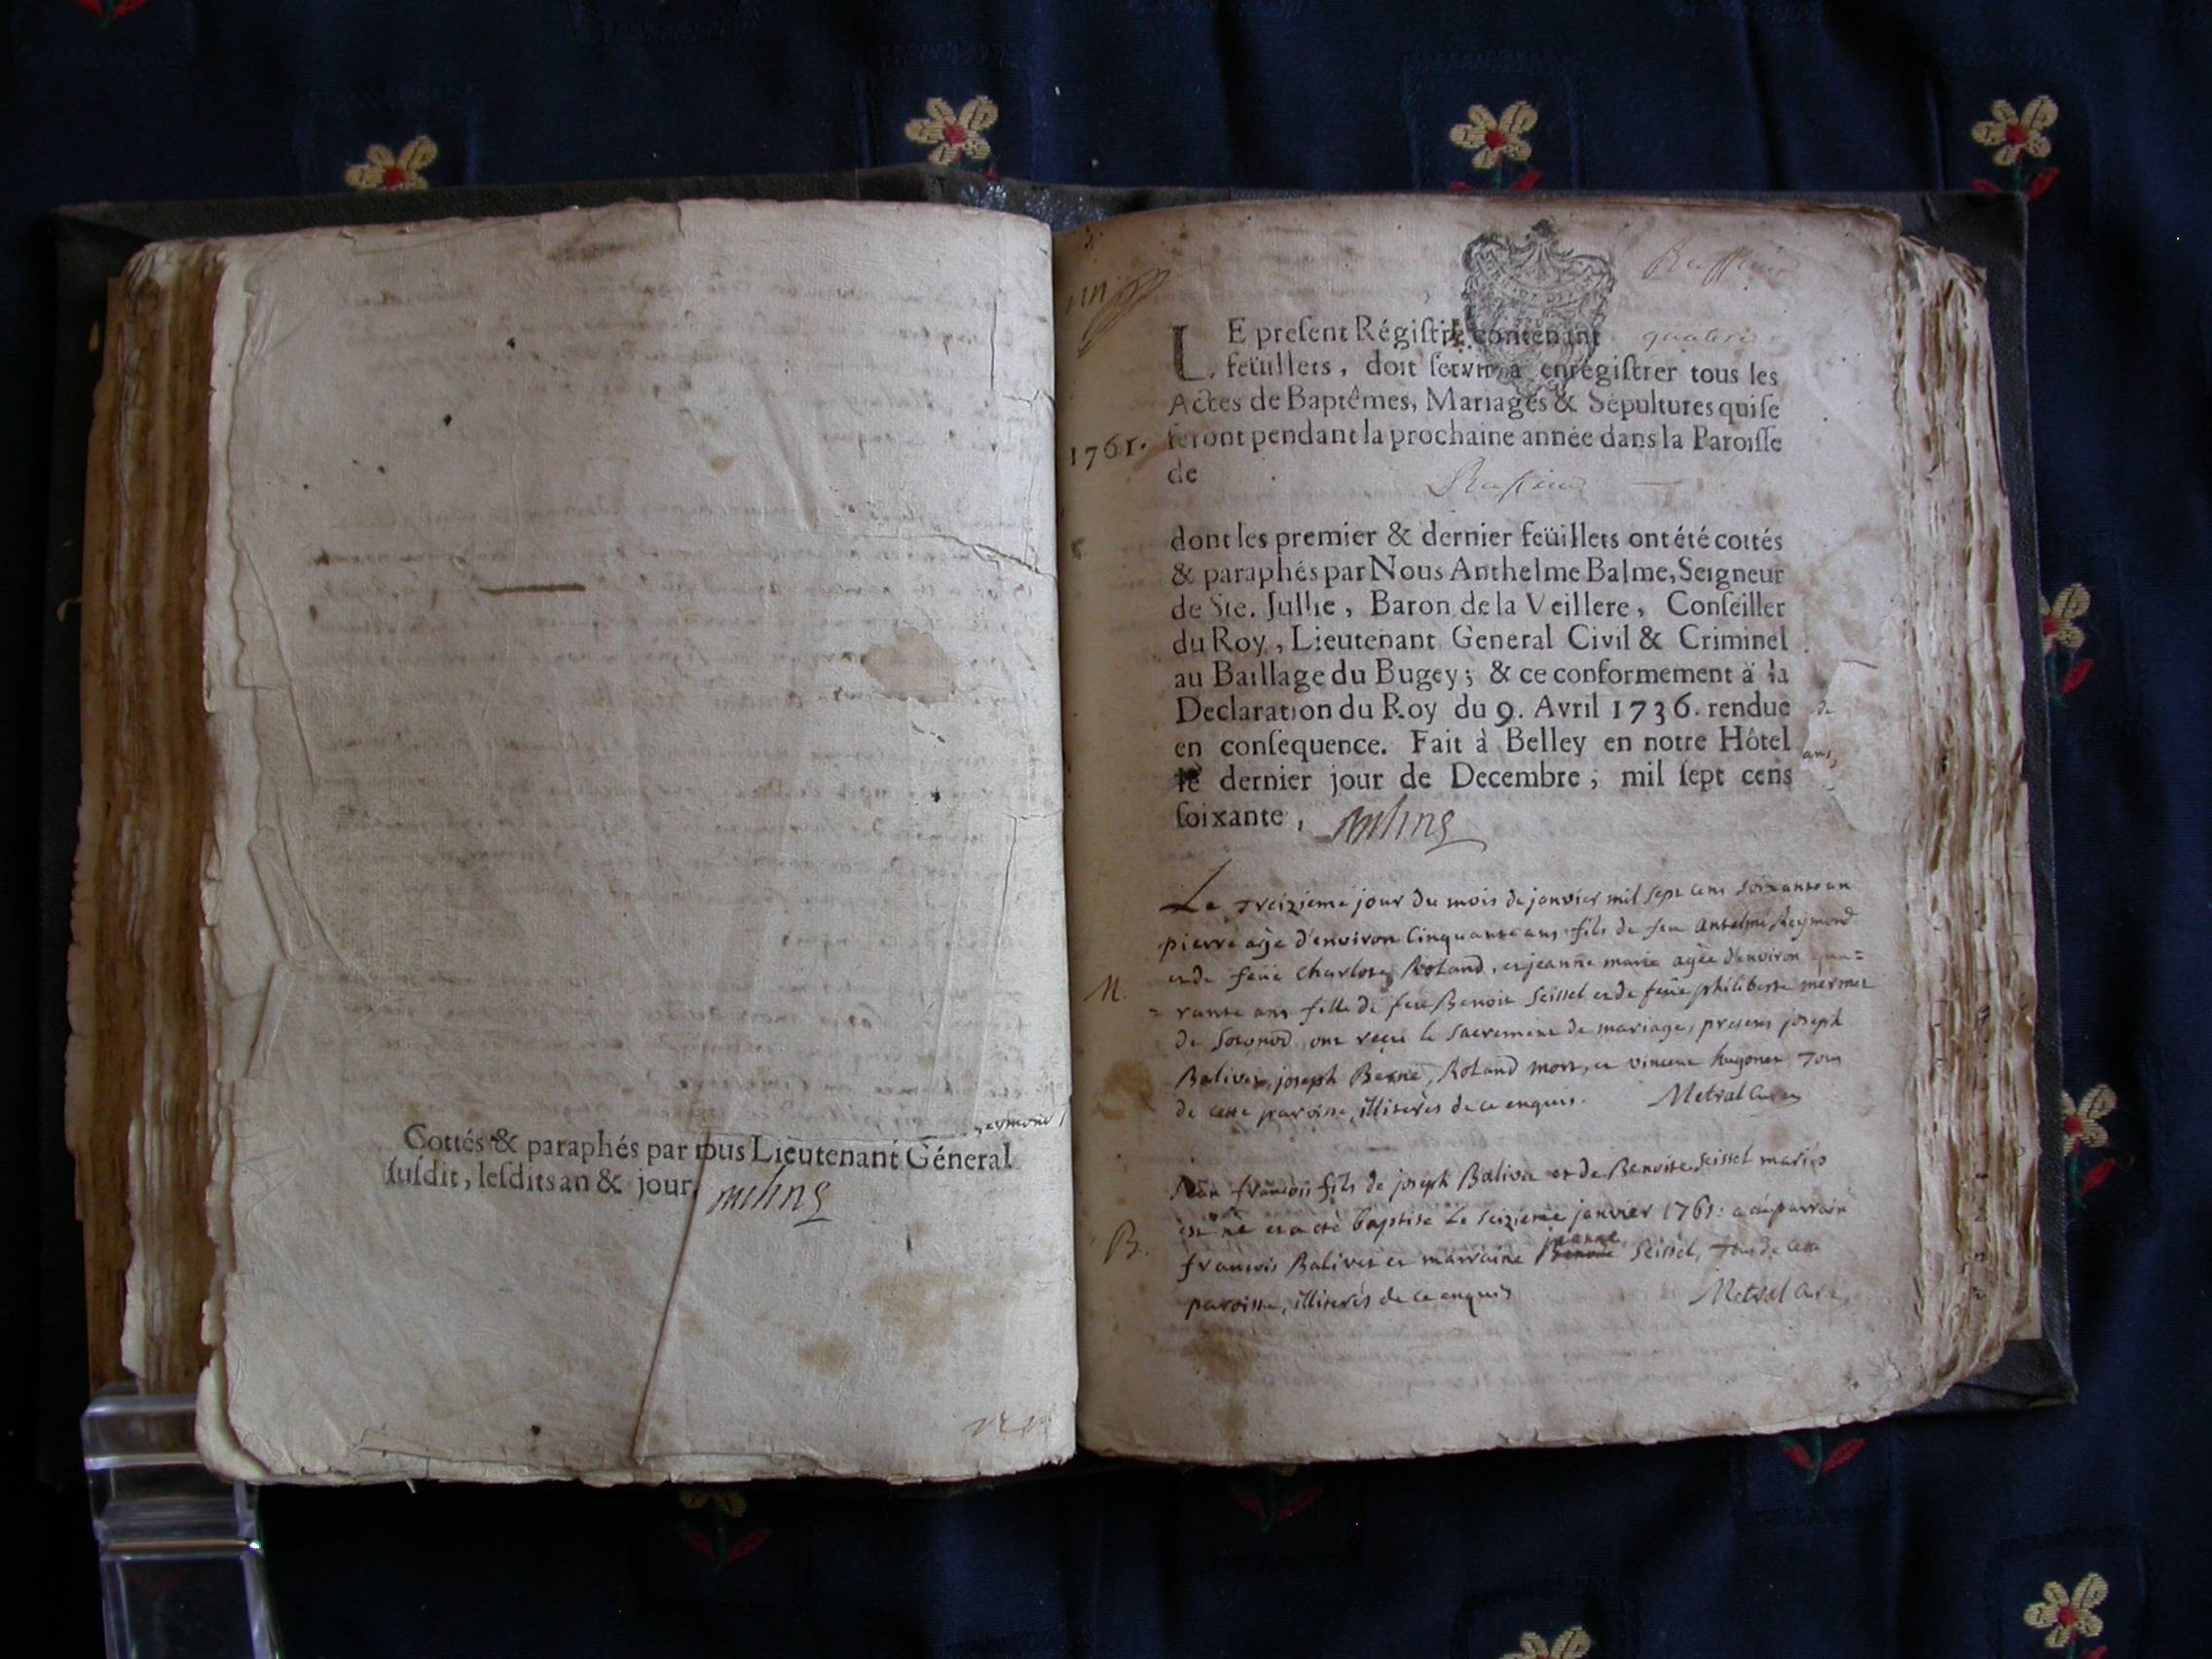 Cottés & paraphés par nous Lieutenant Géneral
ſuſdit, leſdits an & jour,
Ruffieu
LE preſent Régiſtre contenant quatorze
feüillets, doit ſervir a enrégiſtrer tous les
Actes de Baptêmes, Mariages & Sépultures qui ſe
1761. feront pendant la prochaine année dans la Paroiſſe
de Ruffieu
dont les premier & dernier feüillets ont été cottés
& paraphés par Nous Anthelme Balme, Seigneur
de Ste. Jullie, Baron de la Veillere, Conſeiller
du Roy, Lieutenant General Civil & Criminel
au Baillage du Bugey; & ce conformement à la
Declaration du Roy du 9. Avril 1736. rendue
en conſequence. Fait à Belley en notre Hôtel
le dernier jour de Decembre; mil ſept cens
ſoixante,
Le treizieme jour du mois de janvier mil sept cens soixante un
pierre age d'environ cinquante ans fils de feu anselme Reymond
et de feüe charlote Roland, et jeanne marie agée d'environ qua=
M. = rante ans fille de feu Benoit Seissel et de feüe philiberte mermet
de Sotonod ont reçu le sacrement de mariage, presens joseph
Balivet, joseph Berne, Roland mort, et vincent hugonet tous
de cette paroisse, illiterés de ce enquis. Metral Curé
Jean francois fils de joseph Balivet et de Benoite Seissel mariés
est né et a eté baptisé le seizieme janvier 1761: a eté parrain
B. francois Balivet et marraine jeanne Seissel, tous de cette
paroisse, illiterés de ce enquis Metral Curé